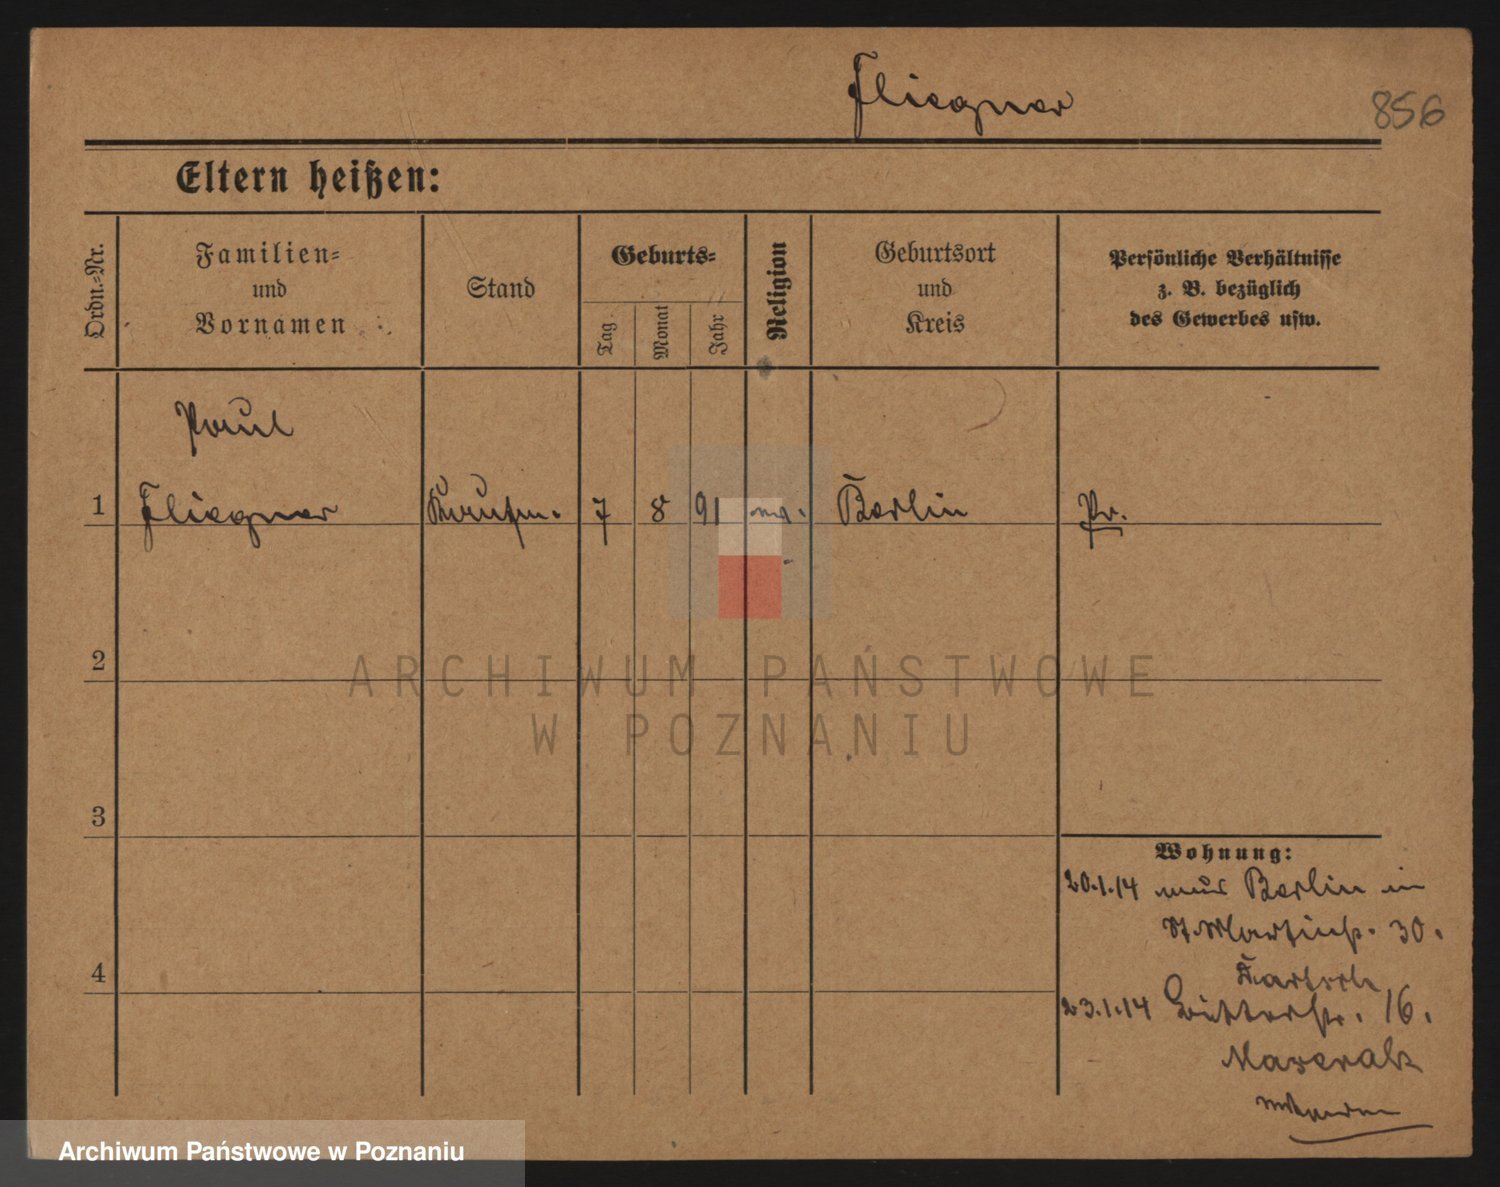 Fliegner
856
Eltern heißen:
Ordn.=Nr.
Familien=
und
Vornamen
Stand
Geburts=
Tag
Monat
Jahr
Religion
Geburtsort
und
Kreis
Persönliche Verhältnisse
z. B. bezüglich
des Gewerbes usw.
Paul
1 Fliegner Kaufm. 7 8 91 Berlin Pr.
2
ARCHIWUM PAŃSTWOWE
W POZNANIU
3
Wohnung:
20.1.14 aus Berlin in
St. Martinstr. 30.
4
23.1.14 Ritterstr. 16.
Archiwum Państwowe w Poznaniu